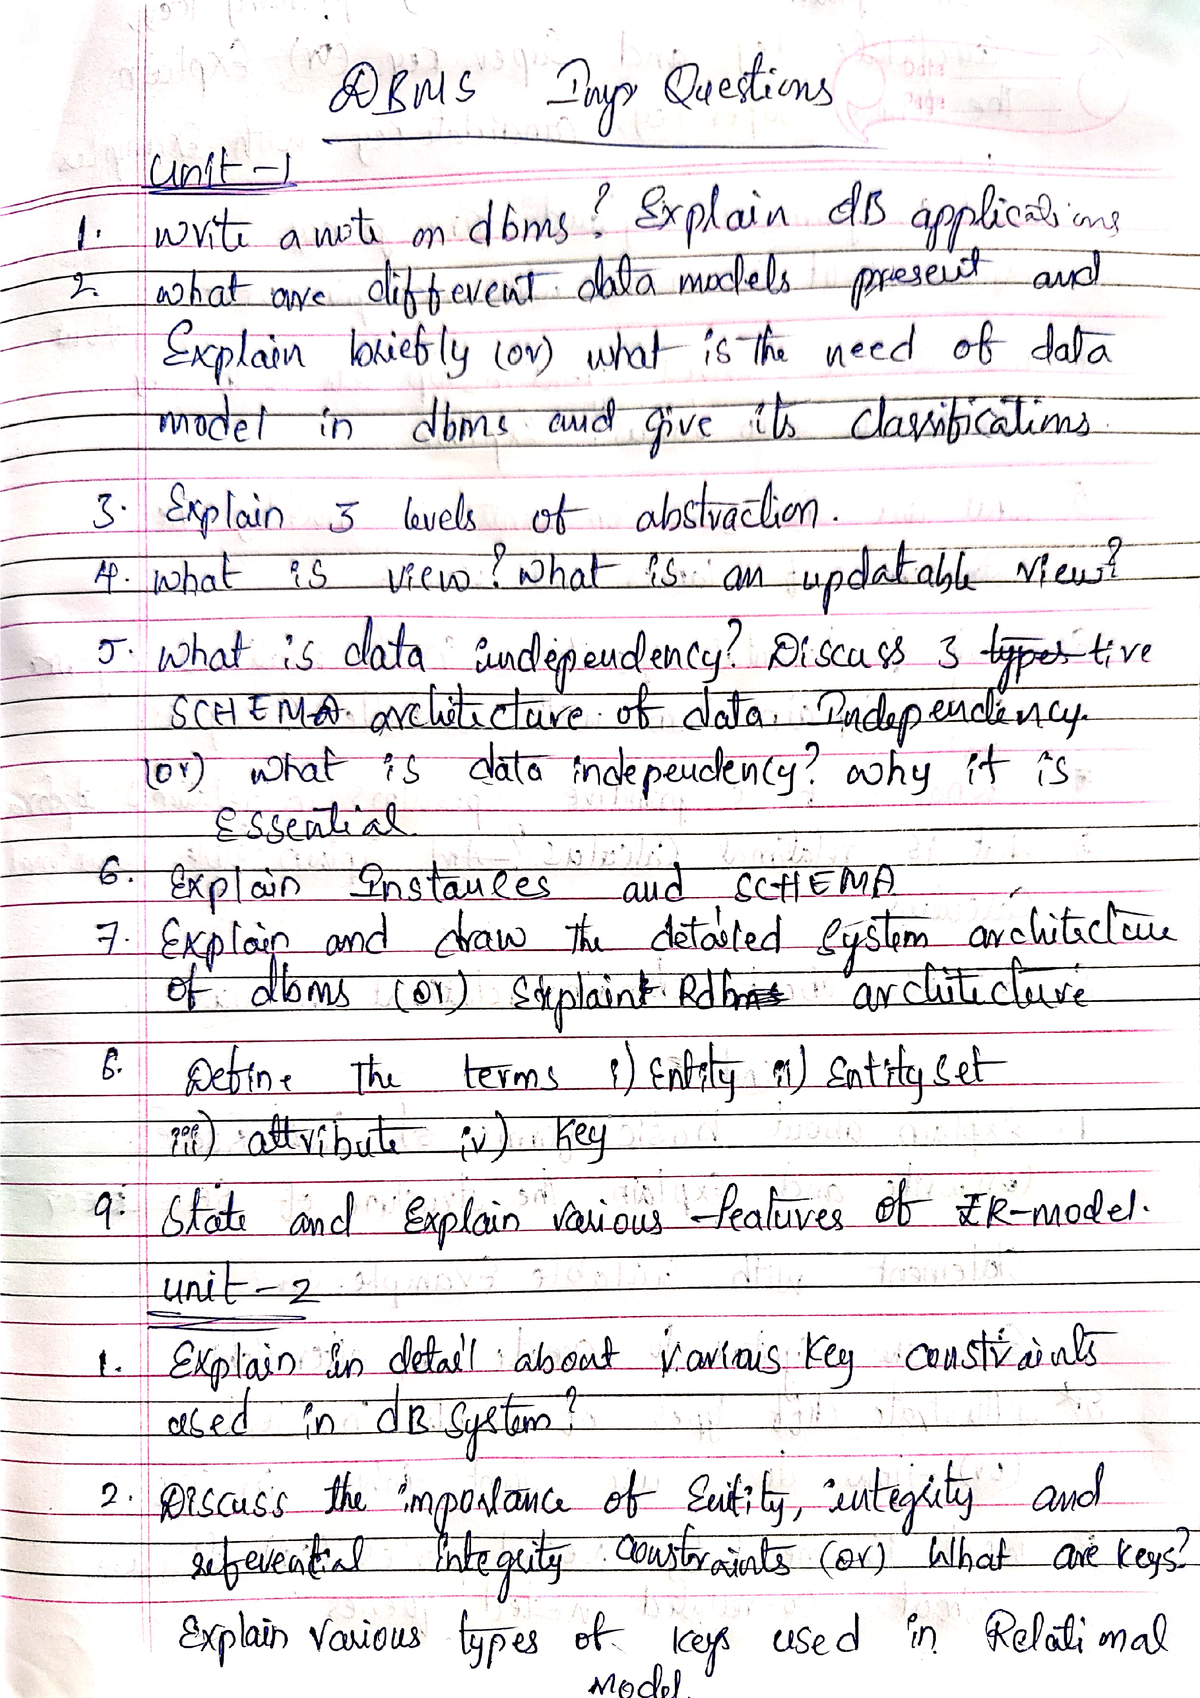 DBMS Imp Questions
Unit-1
1. Write a note on dbms? Explain dB applications
2. What are different data models present and
Explain briefly (or) what is the need of data
model in dbms and give its classifications.
3. Explain 3 levels of abstraction.
4. What is view? What is an updatable view?
5. What is data independency? Discuss 3 types tire
SCHEMA architecture of data Independency.
(or) what is data independency? why it is
Essential
6. Explain Instances and SCHEMA
7. Explain and draw the detailed system architecture
of dbms (or) Explain Rdbms architecture
8. Define the terms i) Entity ii) Entity set
iii) attribute iv) key
9. State and Explain various features of ER-model.
unit-2
1. Explain in detail about various key constraints
used in dB system?
2. Discuss the importance of Entity, integrity and
referential integrity constraints (or) What are keys?
Explain various types of keys used in Relational
Model.